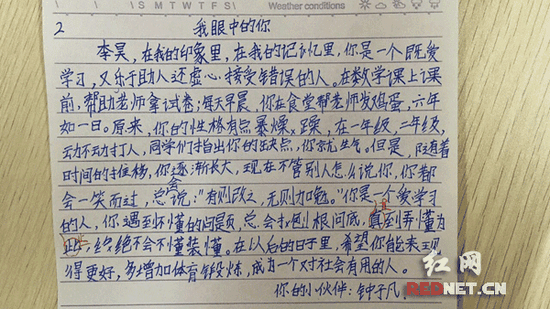 S M T W T F S
Weather conditions
2
我眼中的你
李昊,在我的印象里,在我的记忆里,你是一个既爱
学习,又乐于助人还虚心接受错误的人。在数学课上课
前,帮助老师拿试卷,每天早晨,你在食堂帮老师发鸡蛋,六年
如一日。原来,你的性格有点暴燥躁,在一年级,二年级,
动不动打人,同学们指出你的缺点,你就生气。但是,随着
时间的推移,你逐渐长大,现在不管别人怎么说你,你都
会一笑而过,总会说:"有则改之,无则加勉。"你是一个爱学习
的人,你遇到不懂的问题,总会打到根问底,直到弄懂为
止,绝不会不懂装懂。在以后的日子里,希望你能表现
得更好,多增加体育锻炼,成为一个对社会有用的人。
你的小伙伴:钟子凡
红网
REDNET.CN